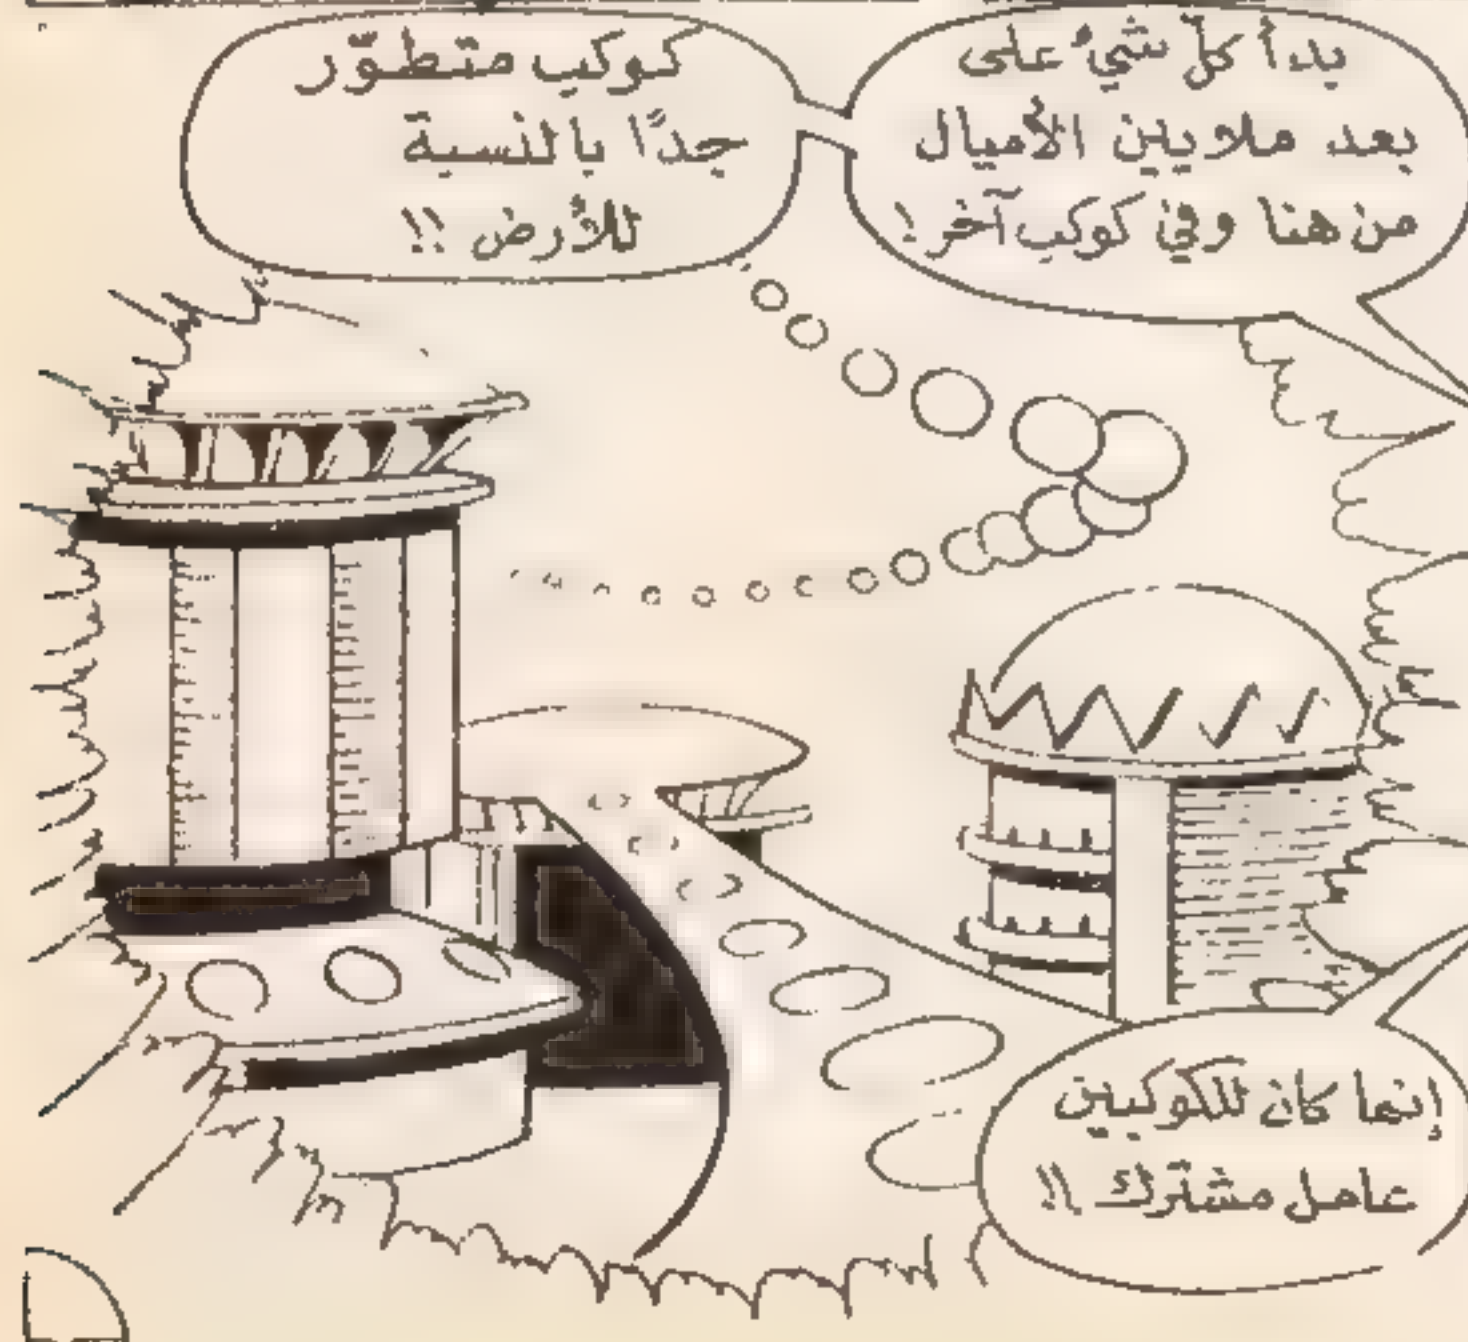 بدأ كلّ شيء على
بعد ملايين الأميال
من هنا وفي كوكب آخر !
كوكب متطوّر
جدًا بالنسبة
للأرض !!
إنما كان للكوكبين
عامل مشترك !!